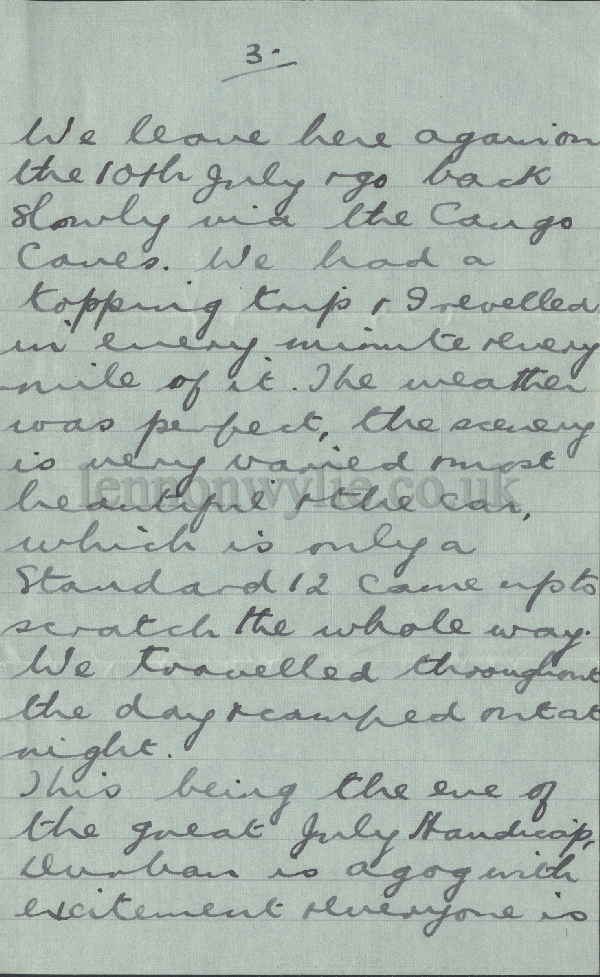 3.
We leave here again on
the 10th July & go back
slowly via the Cango
Caves. We had a
topping trip & I revelled
in every minute & every
mile of it. The weather
was perfect, the scenery
is very varied & most
beautiful & the car,
lennonwylie.co.uk
which is only a
Standard 12 came up to
scratch the whole way.
We travelled throughout
the day & camped out at
night.
This being the eve of
the great July Handicap,
Durban is agog with
excitement & everyone is